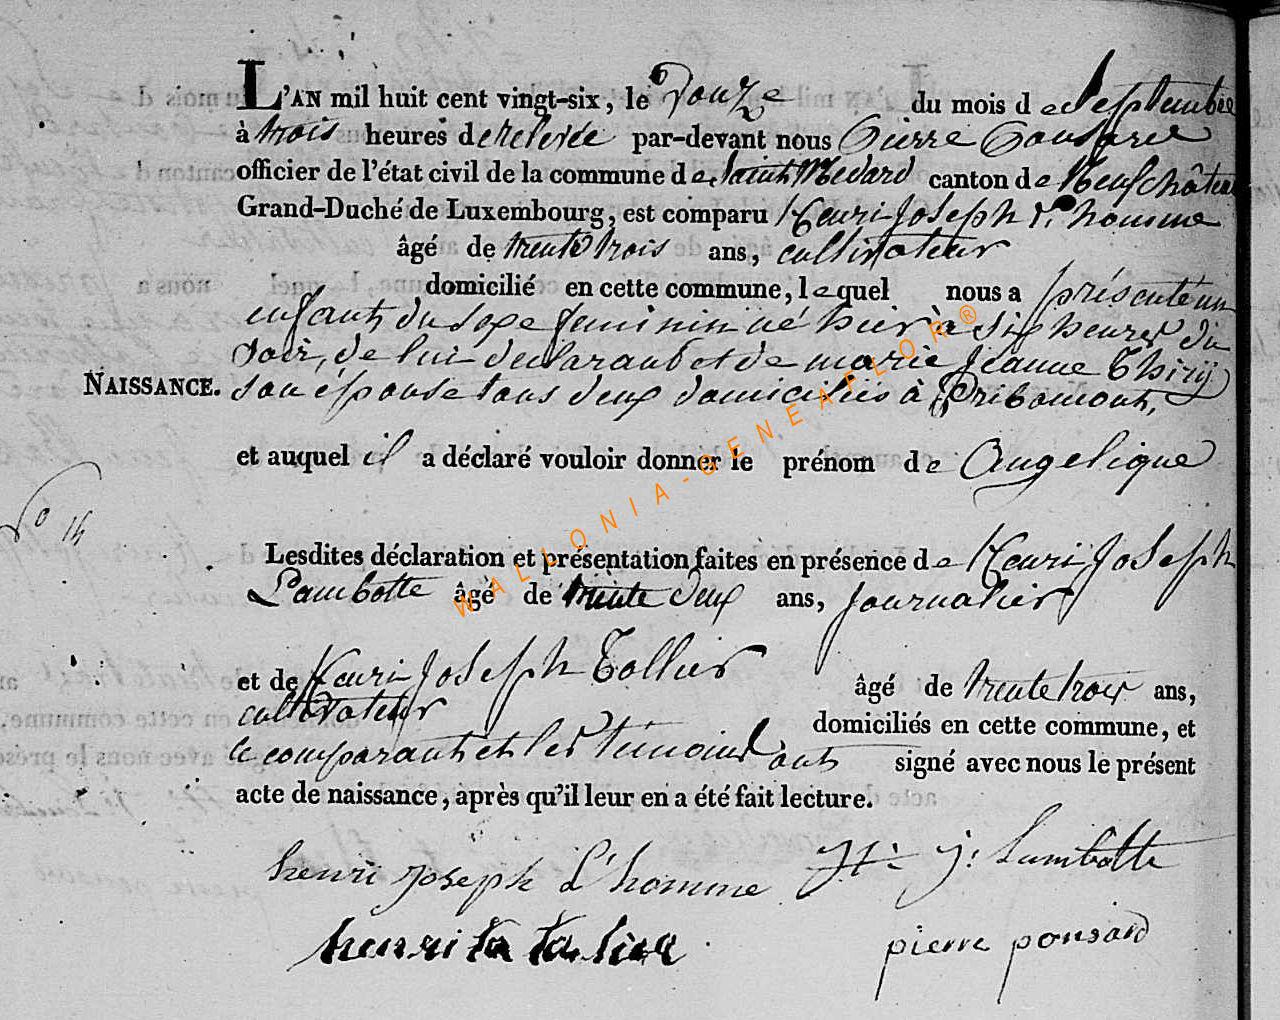 L'AN mil huit cent vingt-six, le Douze du mois de Septembre
à trois heures de relevée par-devant nous Pierre Ponsard
officier de l'état civil de la commune de Saint Médard canton de Neufchâteau
Grand-Duché de Luxembourg, est comparu Henri Joseph L'homme
âgé de trente trois ans, cultivateur
domicilié en cette commune, lequel nous a présenté un
enfant du sexe feminin né hier à six heures du
soir, de lui declarant et de marie Jeanne Thiry
NAISSANCE. son épouse tous deux domiciliés à Pribomont,
et auquel il a déclaré vouloir donner le prénom de Angelique
No 14
Lesdites déclaration et présentation faites en présence de Henri Joseph
Lambotte âgé de trente deux ans, Journalier
et de Henri Joseph Tollier âgé de trente trois ans,
cultivateur domiciliés en cette commune, et
le comparant et les témoins ont signé avec nous le présent
acte de naissance, après qu'il leur en a été fait lecture.
henri joseph L'homme H: j: Lambotte
henri pierre ponsard
WALLONIA-GENEAFLOR®